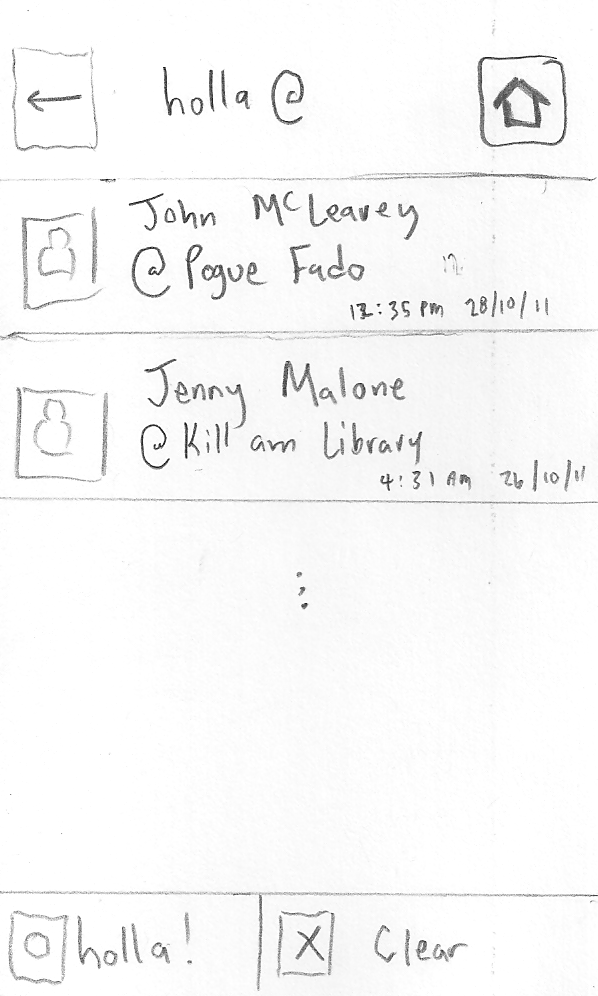 holla @
John McLeavey
@ Pogue Fado
12:35 PM 28/10/11
Jenny Malone
@ Killam Library
4:31 AM 26/10/11
holla!
X Clear